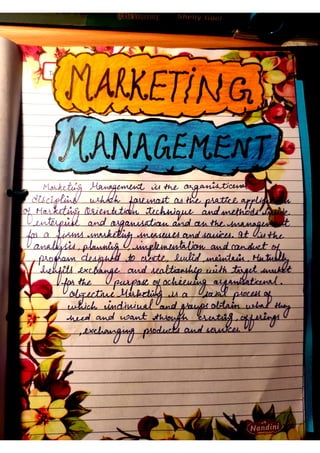 MARKETING
MANAGEMENT
Marketing Management is the organisational
discipline which foremost as the pratice application
of Marketing Orientation Technique and methods inside
enterprise and organisation and on the management
for a firms marketing resources and
analysis, planning, implementation and conduct of
program designed to create, build maintain Mutually
benefits exchange and realtionship with target market
for the purpose of achieving organisational.
Objective Marketing is a social process of
which individual and groups obtain what they
need and want through creating, offerings
, exchanging products and services
Nandini